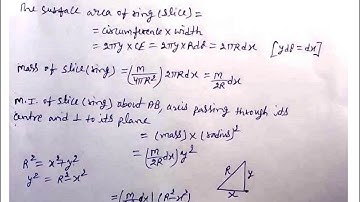 The surface area of ring (slice) =
= circumference × width
= 2πy × CE = 2πy × Rdθ = 2πRdx [ydθ = dx]
Mass of slice (ring) = (M/4πR²) 2πRdx = M/2R dx
M.I. of slice (ring) about AB, axis passing through its
centre and ⊥ to its plane
= (mass) × (radius)²
= (M/2R dx) y²
R² = x² + y²
y² = R² - x²
R y
x
= (M/2R dx) (R² - x²)